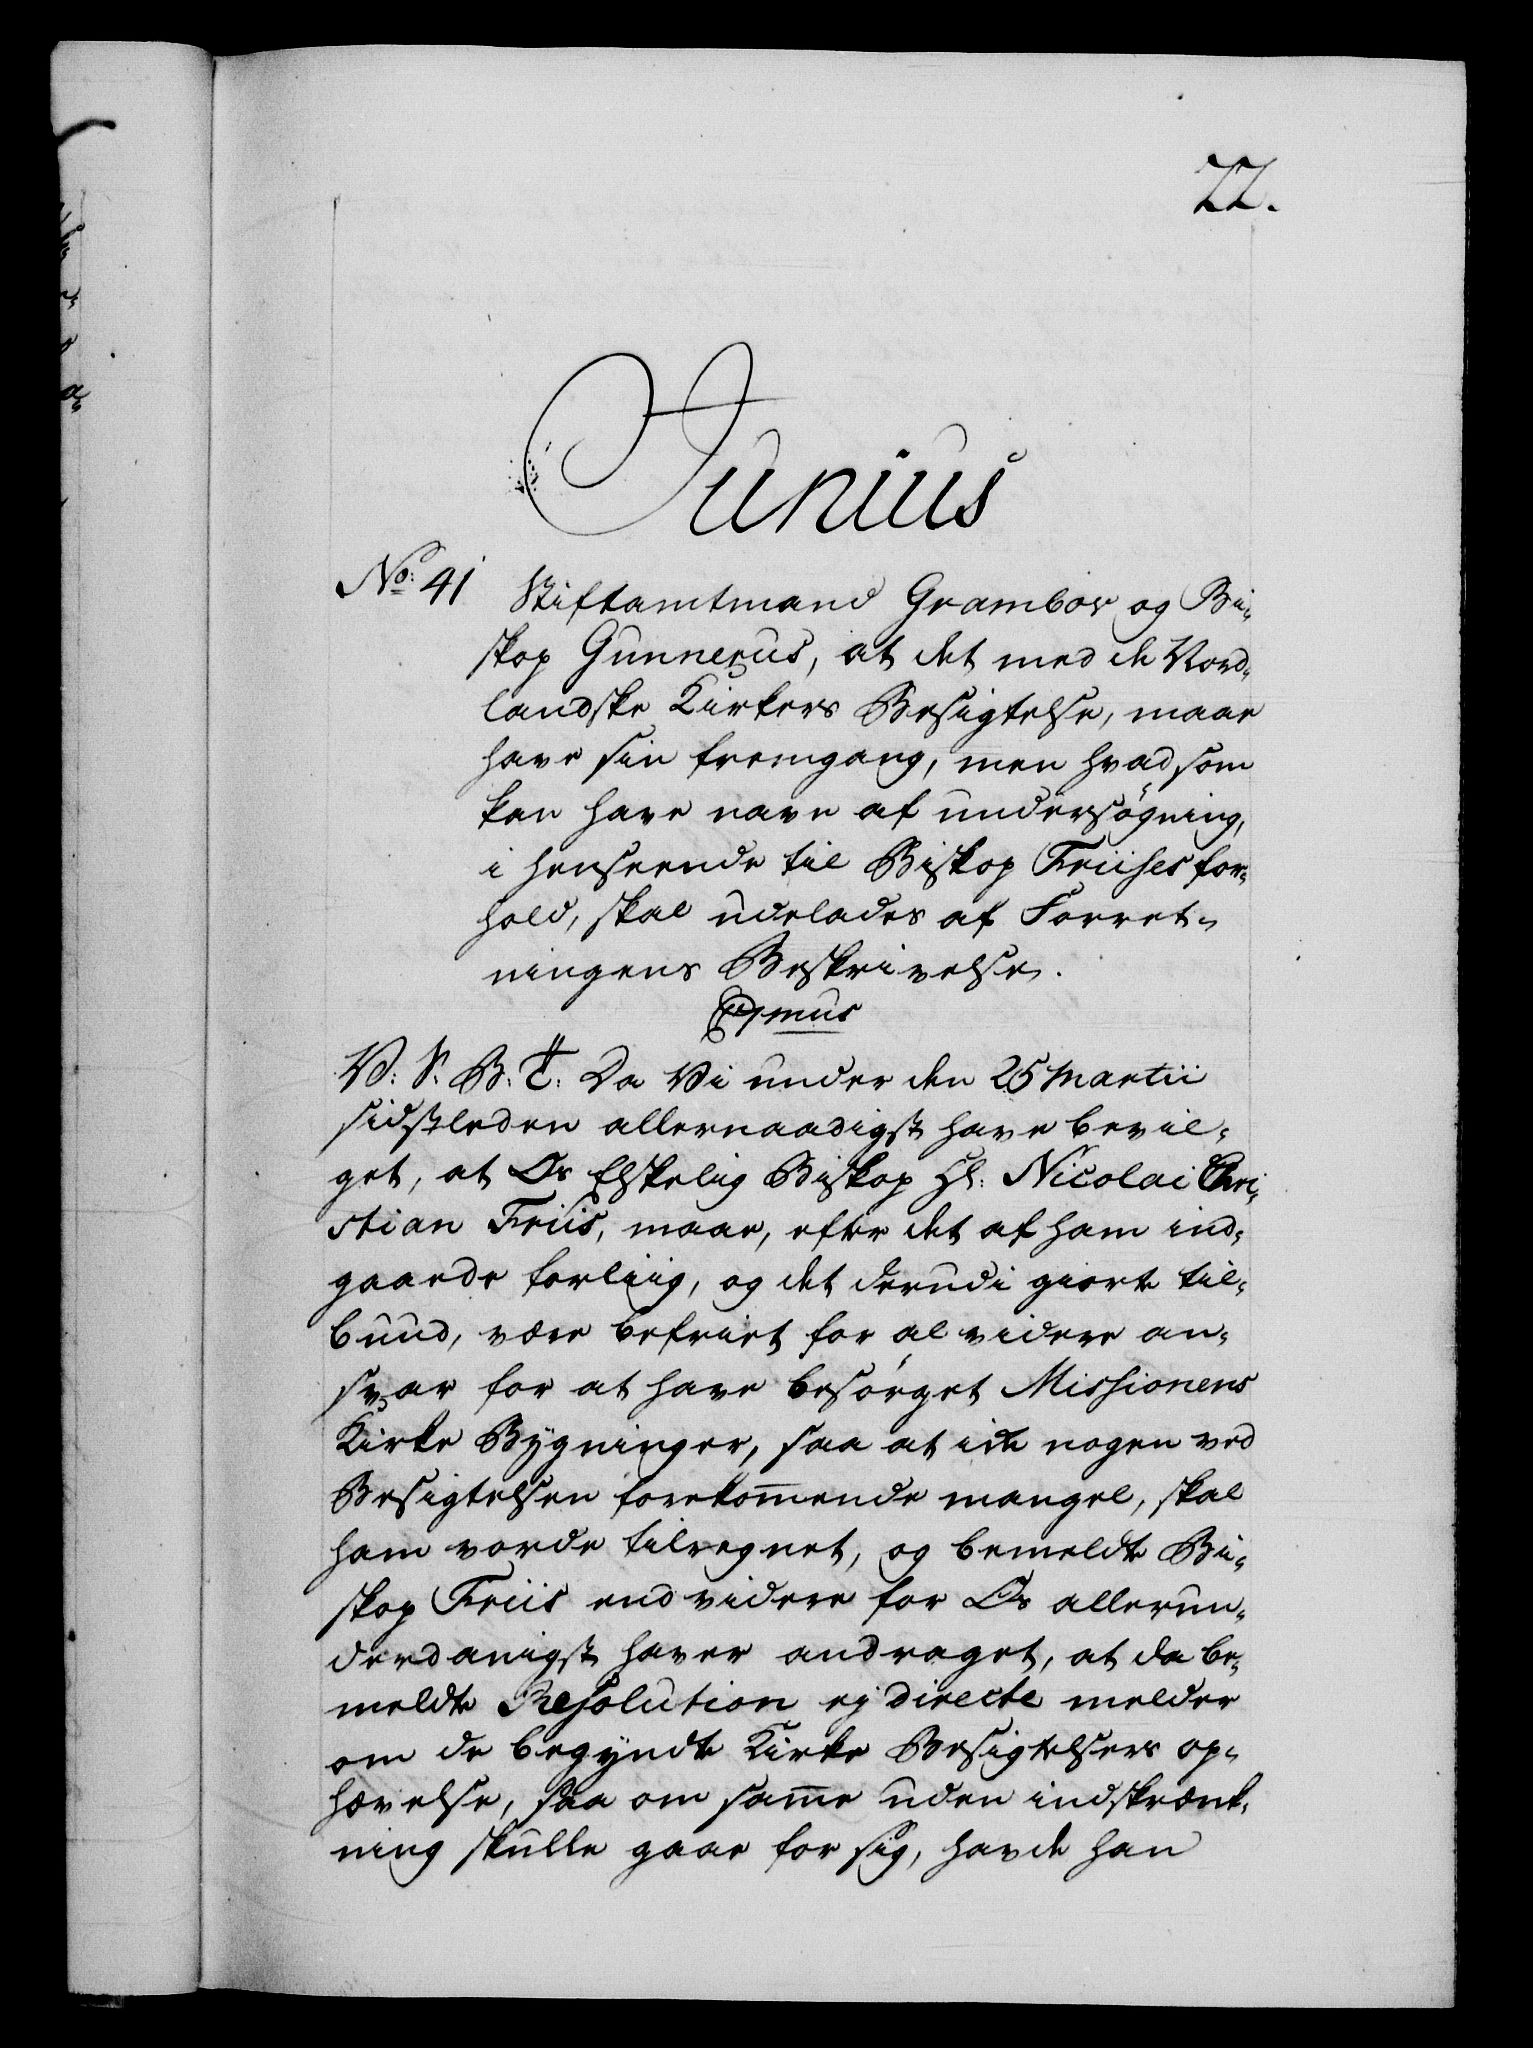 22.
Junius
No: 41 Stiftamtmand Grambow og Bi-
skop Gunnerus, at det med de Nord-
landske Kirkers Besigtelse, maae
have sin fremgang, men hvad som
kan have navn af undersøgning,
i henseende til Biskop Friises for-
hold, skal udelades af Forret-
ningens Beskrivelse.
V: S: B: T: Da Vi under den 25 Martii
sidstleden allernaadigst have bevil-
get, at Os Elskelig Biskop Hr: Nicolai Chri-
stian Friis, maae, efter det af ham ind-
gaaede forliig, og det derudi giorte til-
buud, være befriet for al videre an-
svar for at have besørget Missionens
Kirke Bygninger, saa at icke nogen ved
Besigtelsen forekom̅ende mangel, skal
ham vorde tilregnet, og bemeldte Bi-
skop Friis end videre for Os allerun-
derdanigst haver andraget, at da be-
meldte Resolution ej directe melder
om de begyndte Kirke Besigtelsers op-
hævelse, saa om sam̅e uden indskrænk-
ning skulle gaae for sig, havde han